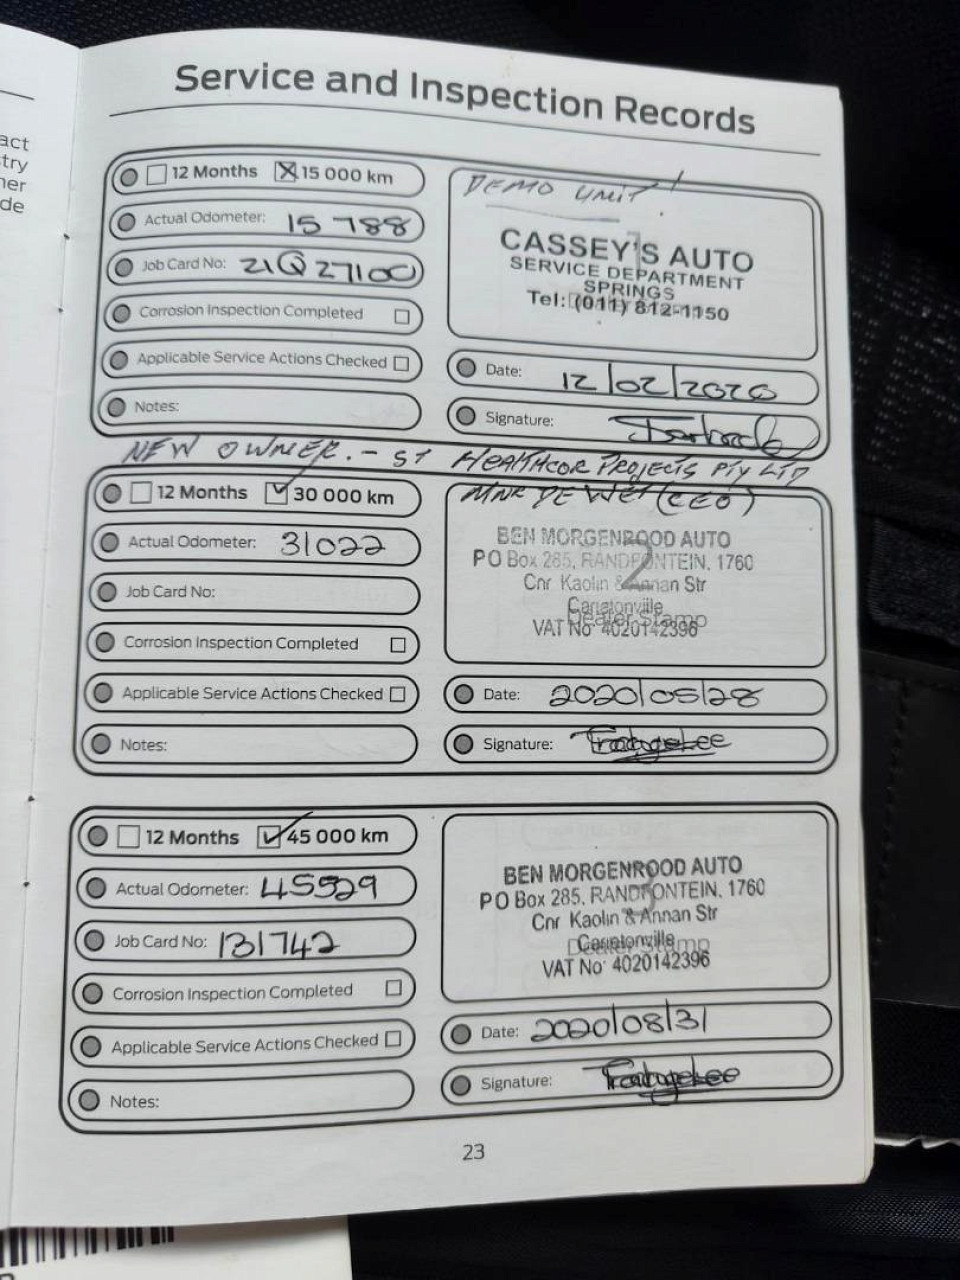 act
try
ner
de
Service and Inspection Records
12 Months 15 000 km
Actual Odometer: 15 788
Job Card No: 21Q27100
Corrosion Inspection Completed
Applicable Service Actions Checked
Notes:
DEMO UNIT!
CASSEY'S AUTO
SERVICE DEPARTMENT
SPRINGS
Tel: (011) 812-1150
Date: 12/02/2020
Signature:
NEW OWNER. - ST HEALTHCOR PROJECTS PTY LTD
MNR DE WET (CEO)
12 Months 30 000 km
Actual Odometer: 31022
Job Card No:
Corrosion Inspection Completed
Applicable Service Actions Checked
Notes:
2
BEN MORGENROOD AUTO
PO Box 285, RANDFONTEIN, 1760
Cnr Kaolin & Annan Str
Carletonville
Dealer Stamp
VAT No 4020142396
Date: 2020/05/28
Signature:
12 Months 45 000 km
Actual Odometer: 45529
Job Card No: 131742
Corrosion Inspection Completed
Applicable Service Actions Checked
Notes:
3
BEN MORGENROOD AUTO
PO Box 285, RANDFONTEIN, 1760
Cnr Kaolin & Annan Str
Carletonville
Dealer Stamp
VAT No 4020142396
Date: 2020/08/31
Signature:
23